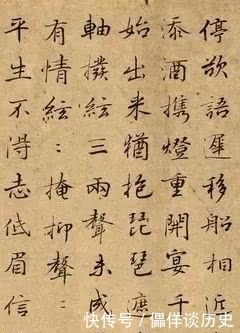 停欲語遲移船相近
添酒携燈重開宴千
始出来猶抱琵琶遮
軸撥絃三兩聲未成
有情絃:掩抑聲:
平生不得志低眉信
快传号 / 儡佯谈历史